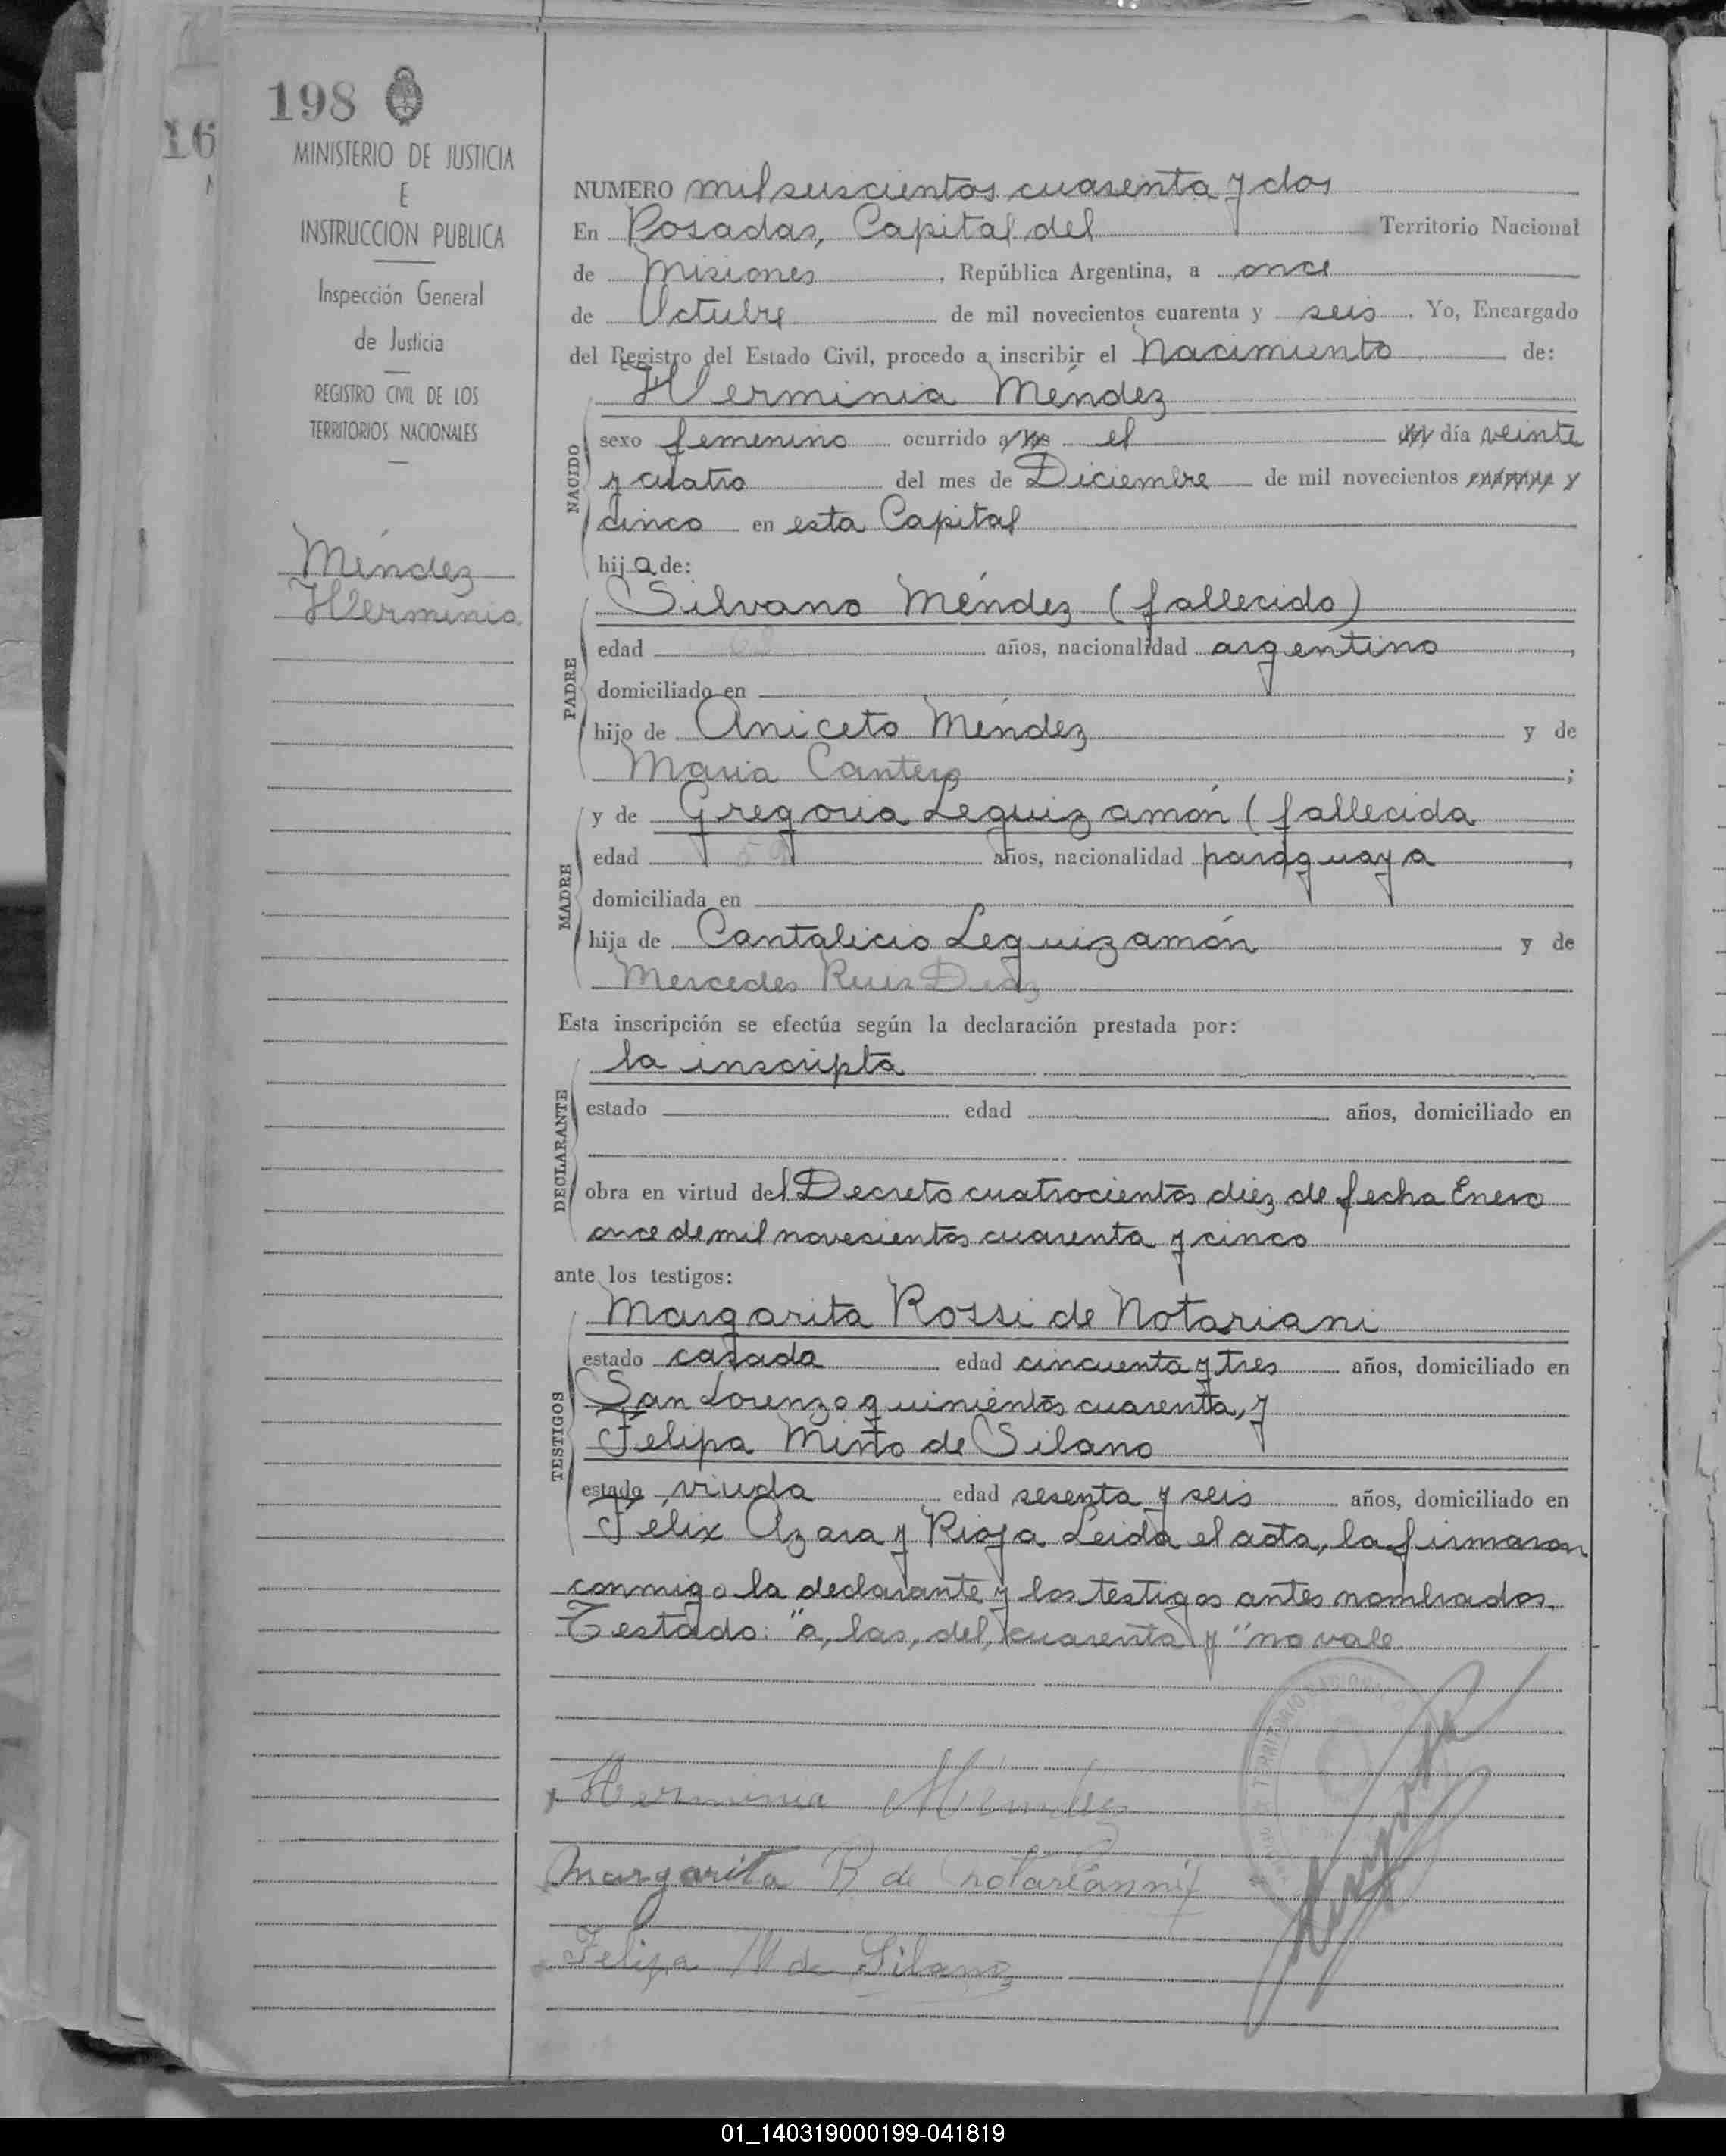 198
16
MINISTERIO DE JUSTICIA
E
INSTRUCCION PUBLICA
Inspección General
de Justicia
REGISTRO CIVIL DE LOS
TERRITORIOS NACIONALES
Méndez
Herminia
NUMERO mil seiscientos cuarenta y dos
En Posadas, Capital del Territorio Nacional
de Misiones, República Argentina, a once
de Octubre de mil novecientos cuarenta y seis. Yo, Encargado
del Registro del Estado Civil, procedo a inscribir el Nacimiento de:
NACIDO
Herminia Méndez
sexo femenino ocurrido a las el del día veinte
y cuatro del mes de Diciembre de mil novecientos cuarenta y
cinco en esta Capital
hija de:
PADRE
Silvano Méndez (fallecido)
edad años, nacionalidad argentino,
domiciliado en
hijo de Aniceto Méndez y de
Maria Cantero;
MADRE
y de Gregoria Leguizamón (fallecida
edad años, nacionalidad paraguaya,
domiciliada en
hija de Cantalicio Leguizamón y de
Mercedes Ruiz Diaz
Esta inscripción se efectúa según la declaración prestada por:
DECLARANTE
la inscripta
estado edad años, domiciliado en
obra en virtud del Decreto cuatrocientos diez de fecha Enero
once de mil novecientos cuarenta y cinco
ante los testigos:
TESTIGOS
Margarita Rossi de Notariani
estado casada edad cincuenta y tres años, domiciliado en
San Lorenzo quinientos cuarenta, y
Felipa Miño de Silano
estado viuda edad sesenta y seis años, domiciliado en
Félix Azara y Rioja Leida el acta, la firmaron
conmigo la declarante y los testigos antes nombrados.
Testado: "a, las, del, cuarenta y" no vale.
Herminia Mendez
Margarita R de Notarianni
Felipa M de Silano
01_140319000199-041819